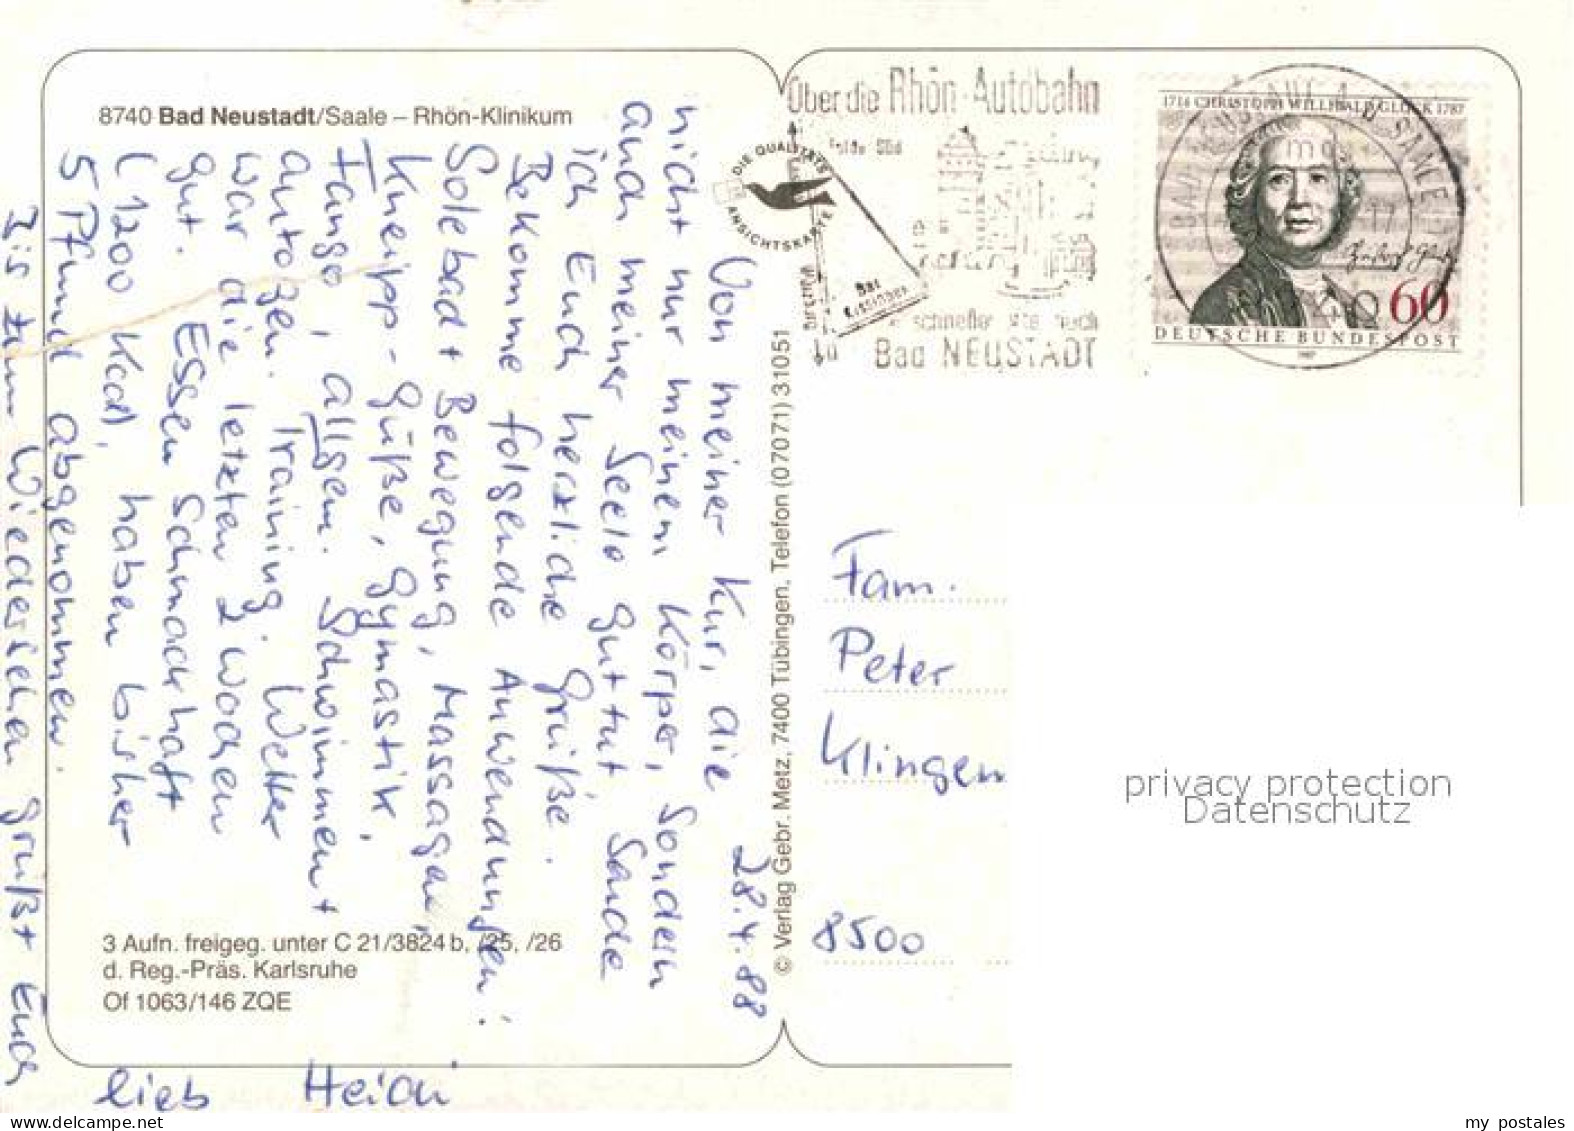 8740 Bad Neustadt/Saale – Rhön-Klinikum
28.4.88
Von meiner Kur, die
nicht nur meinem Körper, sondern
auch meiner Seele gut tut, sende
ich Euch herzliche Grüße.
Bekomme folgende Anwendungen:
Solebad + Bewegung, Massagen,
Kneipp-Güße, Gymastik,
Tango, allgem. Schwimmen +
autogen. Training. Wetter
war die letzten 2 Wochen
gut. Essen schmackhaft
(1200 Kcal, haben bisher
5 Pfund abgenommen.
Bis zum Wiedersehen grüßt Euch
lieb Heidi
3 Aufn. freigeg. unter C 21/3824 b, /25, /26
d. Reg.-Präs. Karlsruhe
Of 1063/146 ZQE
© Verlag Gebr. Metz, 7400 Tübingen, Telefon (07071) 31051
DIE QUALITÄTS
ANSICHTSKARTE
Über die Rhön-Autobahn
Bad Kissingen
Würzburg
schneller als nach
Bad NEUSTADT
1714 CHRISTOPH WILLIBALD GLUCK 1787
60
DEUTSCHE BUNDESPOST
Fam.
Peter
Klingen
8500
privacy protection
Datenschutz
my postales